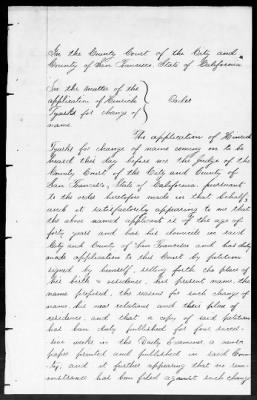 In the County Court of the City and
County of San Francisco, State of California.
In the matter of the
application of Hinrich
Tjarks for change of
name
Order
The application of Hinrich
Tjarks for change of name coming on to be
heard this day before me the Judge of the
County Court of the City and County of
San Francisco, State of California, pursuant
to the order heretofore made in that behalf,
and it satisfactorily appearing to me that
the above named applicant is of the age of
forty years and has his domicile in said
City and County of San Francisco and has duly
made application to this Court by petition
signed by himself, setting forth the place of
his birth & residence, his present name, the
name proposed, the reasons for such change of
name, his near relations and their place of
residence, and that a copy of said petition
has been duly published for four succes-
sive weeks in the Daily Examiner a news-
paper printed and published in said Coun-
ty, and it further appearing that no rem-
onstrance has been filed against such change